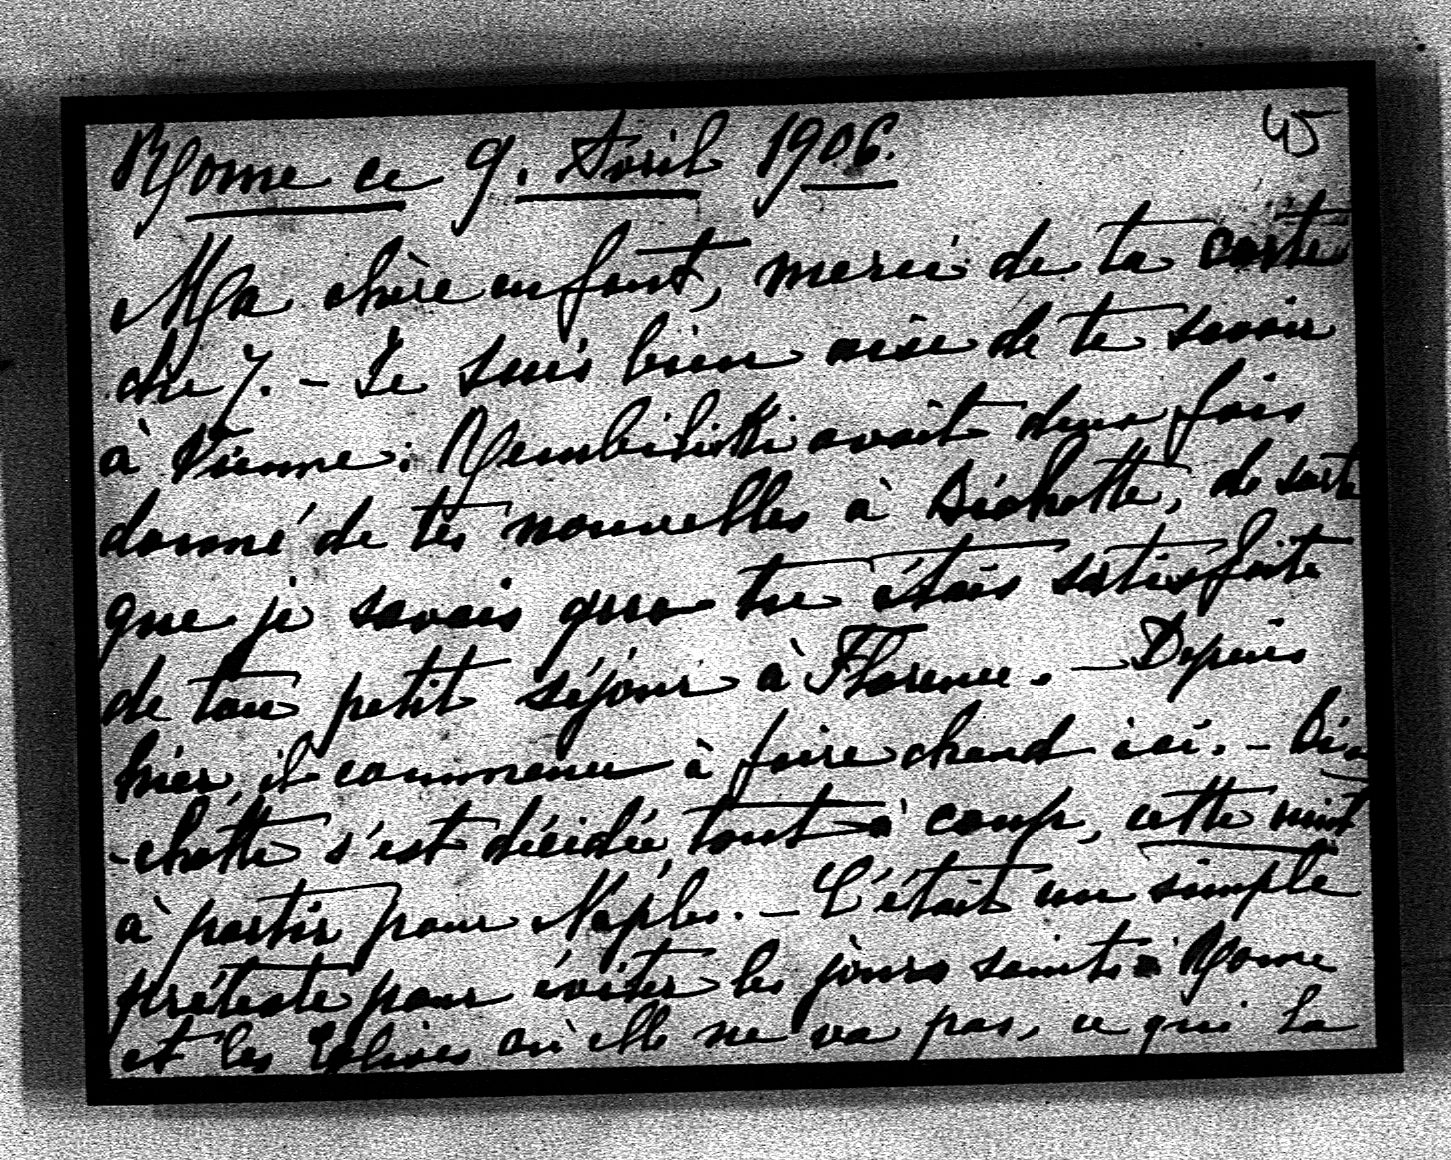 45
Rome ce 9. Avril 1906.
Ma chère enfant, merci de ta carte
du 7. – Je suis bien aise de te savoir
à Vienne. Rembilinski avait deux fois
donné de tes nouvelles à Bichette, de sorte
que je savais que tu étais satisfaite
de ton petit séjour à Florence. – Depuis
hier, il commence à faire chaud ici. – Bi
-chette s'est décidée, tout à coup, cette nuit
à partir pour Naples. – C'était un simple
prétexte pour éviter les jours saints à Rome
et les Eglises où elle ne va pas, ce qui la